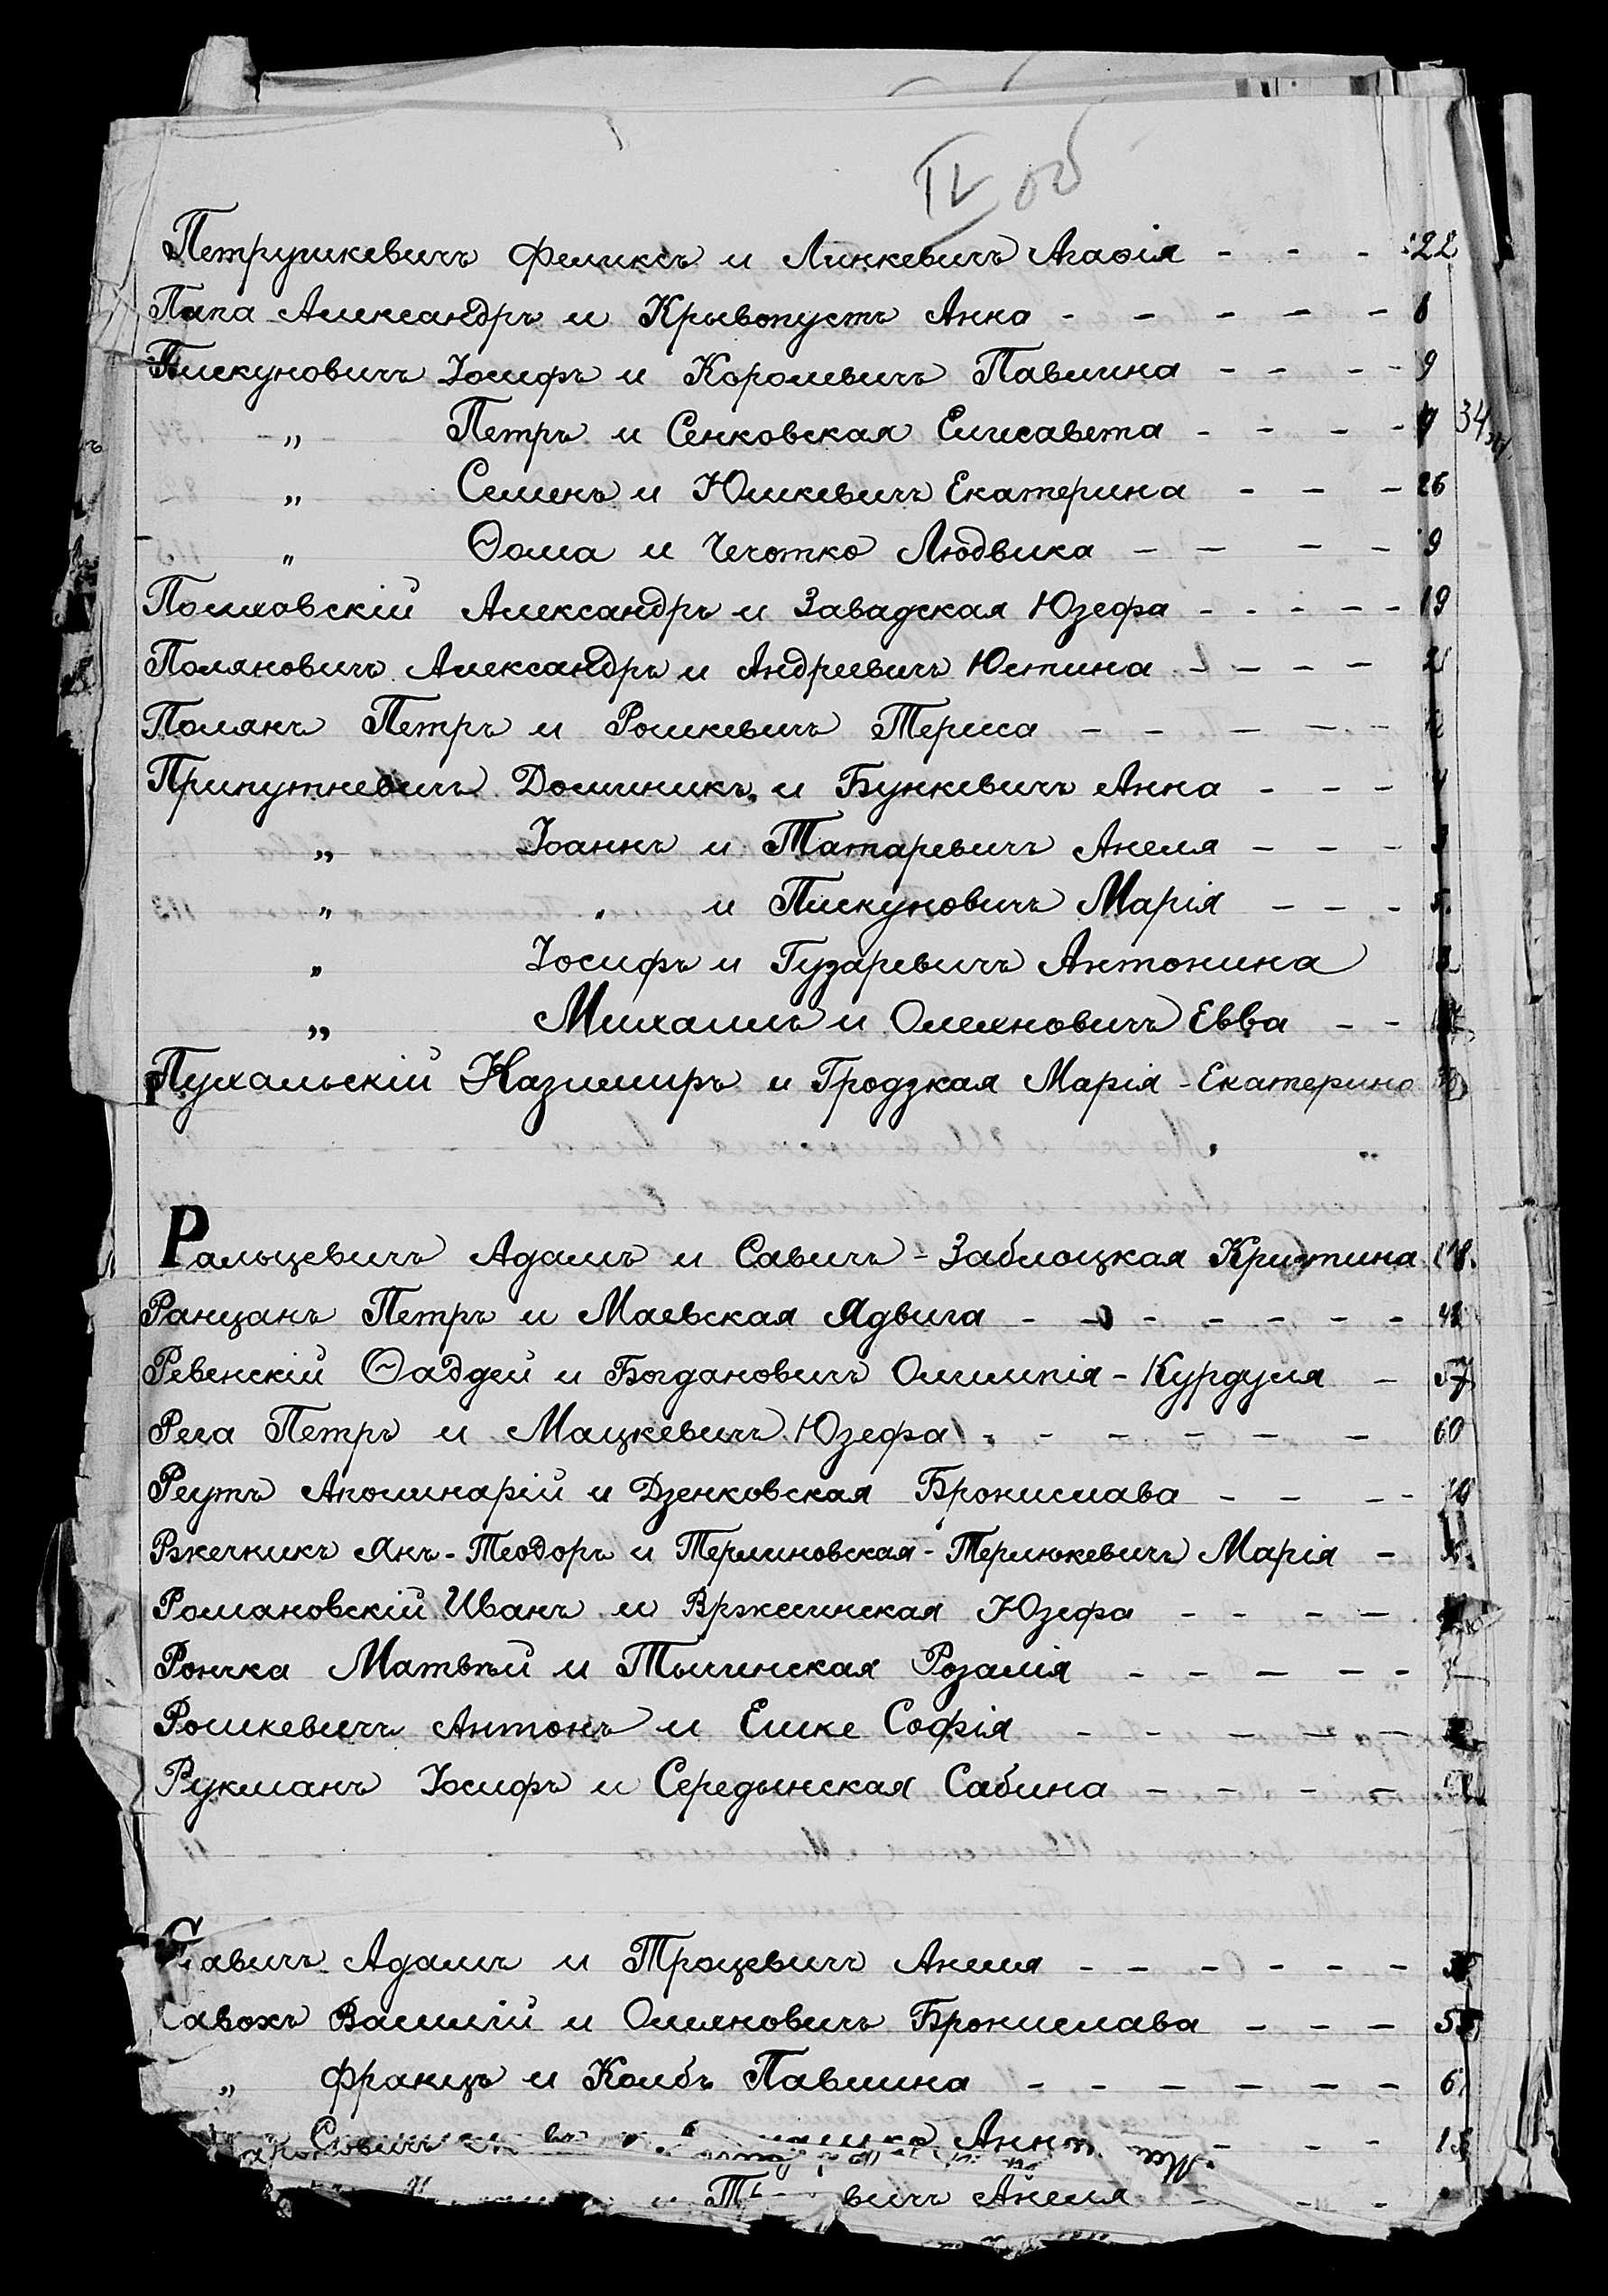 IV об
Петрушкевичъ Феликсъ и Линкевичъ Агафія - - - 122
Папа Александръ и Крывопустъ Анна - - - - - 8
Пискуновичъ Іосифъ и Королевичъ Павлина - - - - 9
„ Петръ и Сенковская Елисавета - - - - 34
„ Семенъ и Юшкевичъ Екатерина - - - 26
„ Ѳома и Чечотко Людвика - - - - 9
Полховскій Александръ и Завадская Юзефа - - - - - 19
Поляновичъ Александръ и Андреевичъ Юстина - - - -
Полянъ Петръ и Рошкевичъ Тереса - - - - -
Припутневичъ Доминикъ и Бункевичъ Анна - - -
„ Іоаннъ и Татаревичъ Анеля - - -
„ „ и Пискуновичъ Марія - - - 5.
„ Іосифъ и Гузаревичъ Антонина
„ Михаилъ и Олехновичъ Евва - -
Пухальскій Казимиръ и Гродзкая Марія-Екатерина
Ральцевичъ Адамъ и Савичъ-Заблоцкая Кристина
Ранцанъ Петръ и Маевская Ядвига - - - - - - -
Ревенскій Ѳаддей и Богдановичъ Олимпія-Курдуля - 57
Рега Петръ и Мацкевичъ Юзефа - - - - - - 60
Реутъ Аполинарій и Дзенковская Бронислава - - - -
Ржечникъ Янъ-Теодоръ и Терлиновская-Терлюкевичъ Марія -
Романовскій Иванъ и Вржесинская Юзефа - - - -
Рончка Матвѣй и Тылинская Розалія - - - - -
Рошкевичъ Антонъ и Ешке Софія - - - - -
Рукманъ Іосифъ и Середынская Сабина - - - -
Савичъ Адамъ и Троцевичъ Анеля - - - - - -
Савохъ Василій и Олехновичъ Бронислава - - -
„ Францъ и Колбъ Павлина - - - - - -
Анна
вичъ Анеля - - -